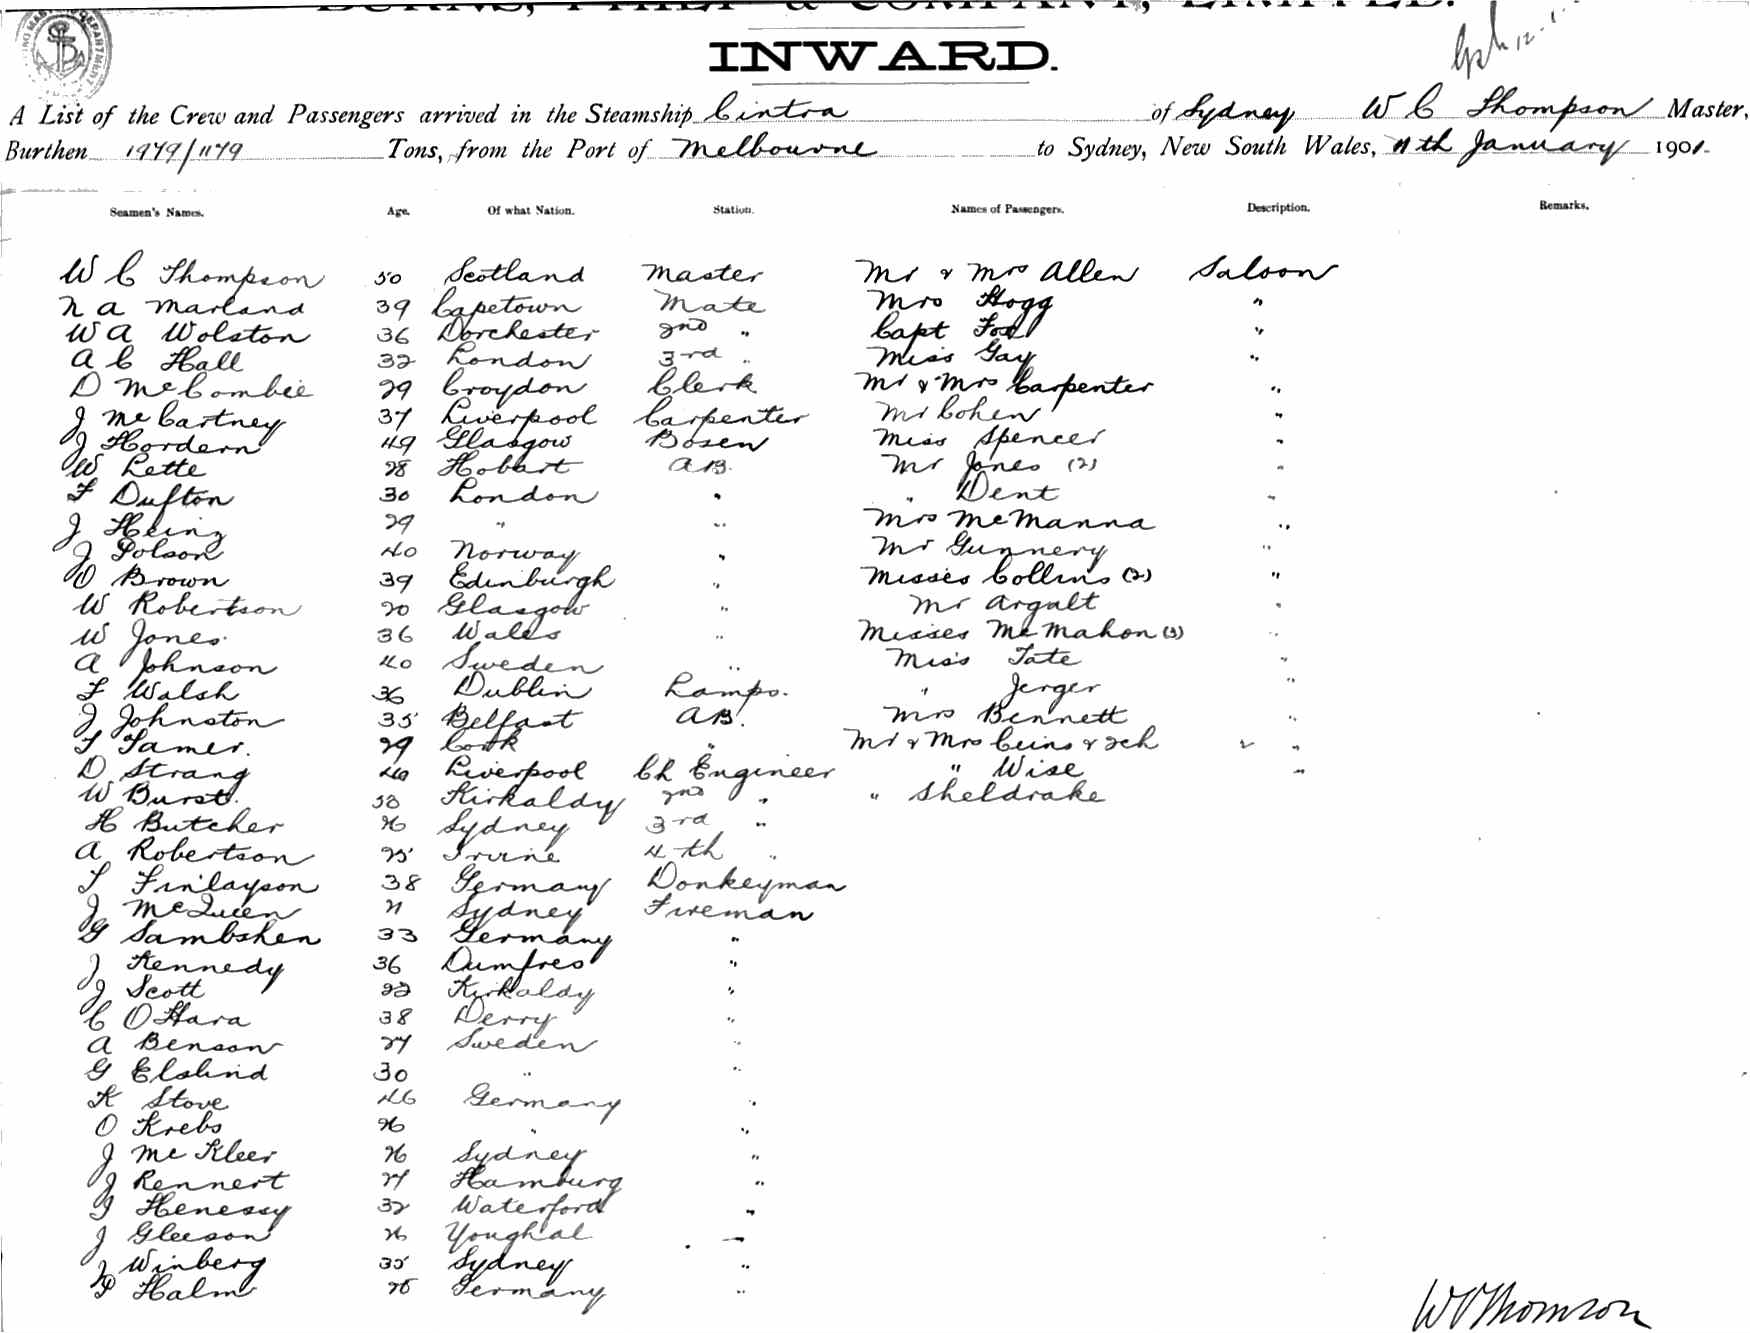 BURNS, PHILP & COMPANY, LIMITED.
INWARD.
A List of the Crew and Passengers arrived in the Steamship Cintra of Sydney W C Thompson Master,
Burthen 1979/1179 Tons, from the Port of Melbourne to Sydney, New South Wales, 11th January 1901.
Seamen's Names. Age. Of what Nation. Station. Names of Passengers. Description. Remarks.
W C Thompson 50 Scotland Master Mr & Mrs Allen Saloon
N A Marland 39 Capetown Mate Mrs Hogg "
W A Wolston 36 Dorchester 2nd " Capt Fox "
A C Hall 32 London 3rd " Miss Gay "
D McCombie 29 Croydon Clerk Mr & Mrs Carpenter "
J McCartney 37 Liverpool Carpenter Mr Cohen "
J Hordern 49 Glasgow Bosen Miss Spencer "
W Lette 28 Hobart AB. Mr Jones (2) "
F Dufton 30 London " " Dent "
J Heinz 29 " " Mrs McManna "
J Polson 40 Norway " Mr Gunnery "
O Brown 39 Edinburgh " Misses Collins (2) "
W Robertson 20 Glasgow " Mr Argalt "
W Jones 36 Wales " Misses McMahon (3) "
A Johnson 40 Sweden " Miss Tate "
F Walsh 36 Dublin Lamps. " Jerger "
J Johnston 35 Belfast AB. Mrs Bennett "
T Tamer. 29 Cork " Mr & Mrs Ceins & 2ch " "
D Strang 40 Liverpool Ch Engineer " Wise "
W Burst. 50 Kirkaldy 2nd " " Sheldrake
H Butcher 26 Sydney 3rd "
A Robertson 25 Irvine 4th "
T Finlayson 38 Germany Donkeyman
J McQueen 21 Sydney Fireman
G Sambshen 33 Germany "
J Kennedy 36 Dumfres "
J Scott 22 Kirkaldy "
C O'Hara 38 Derry "
A Benson 27 Sweden "
G Elslind 30 " "
K Stove 46 Germany "
O Krebs 26 " "
J McKleer 26 Sydney "
J Rennert 27 Hamburg "
J Henessy 32 Waterford "
J Gleeson 26 Youghal "
J Winberg 35 Sydney "
P Halm 26 Germany "
W C Thomson